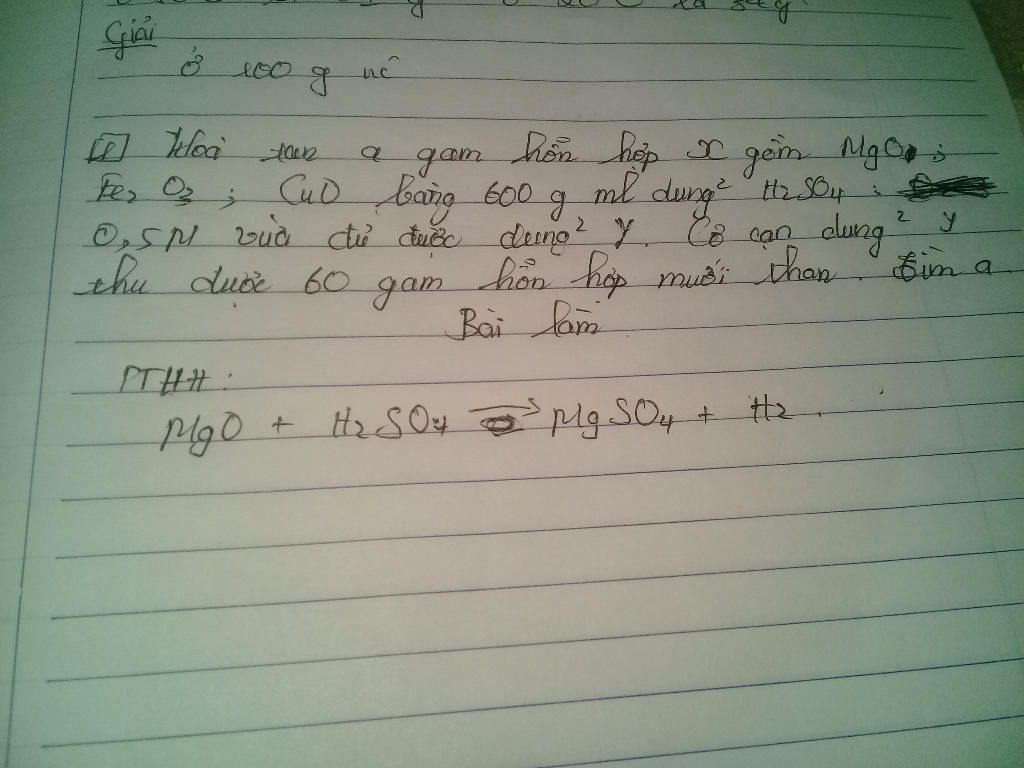 Giải
Ở 100 g nc
Hoà tan a gam hỗn hợp x gồm MgO ;
Fe2 O3 ; CuO bằng 600 g ml dung² H2SO4 :
0,5M vừa đủ được dung² Y. Cô cạn dung² y
thu được 60 gam hỗn hợp muối khan. tìm a.
Bài làm
PTHH :
MgO + H2SO4 → MgSO4 + H2.